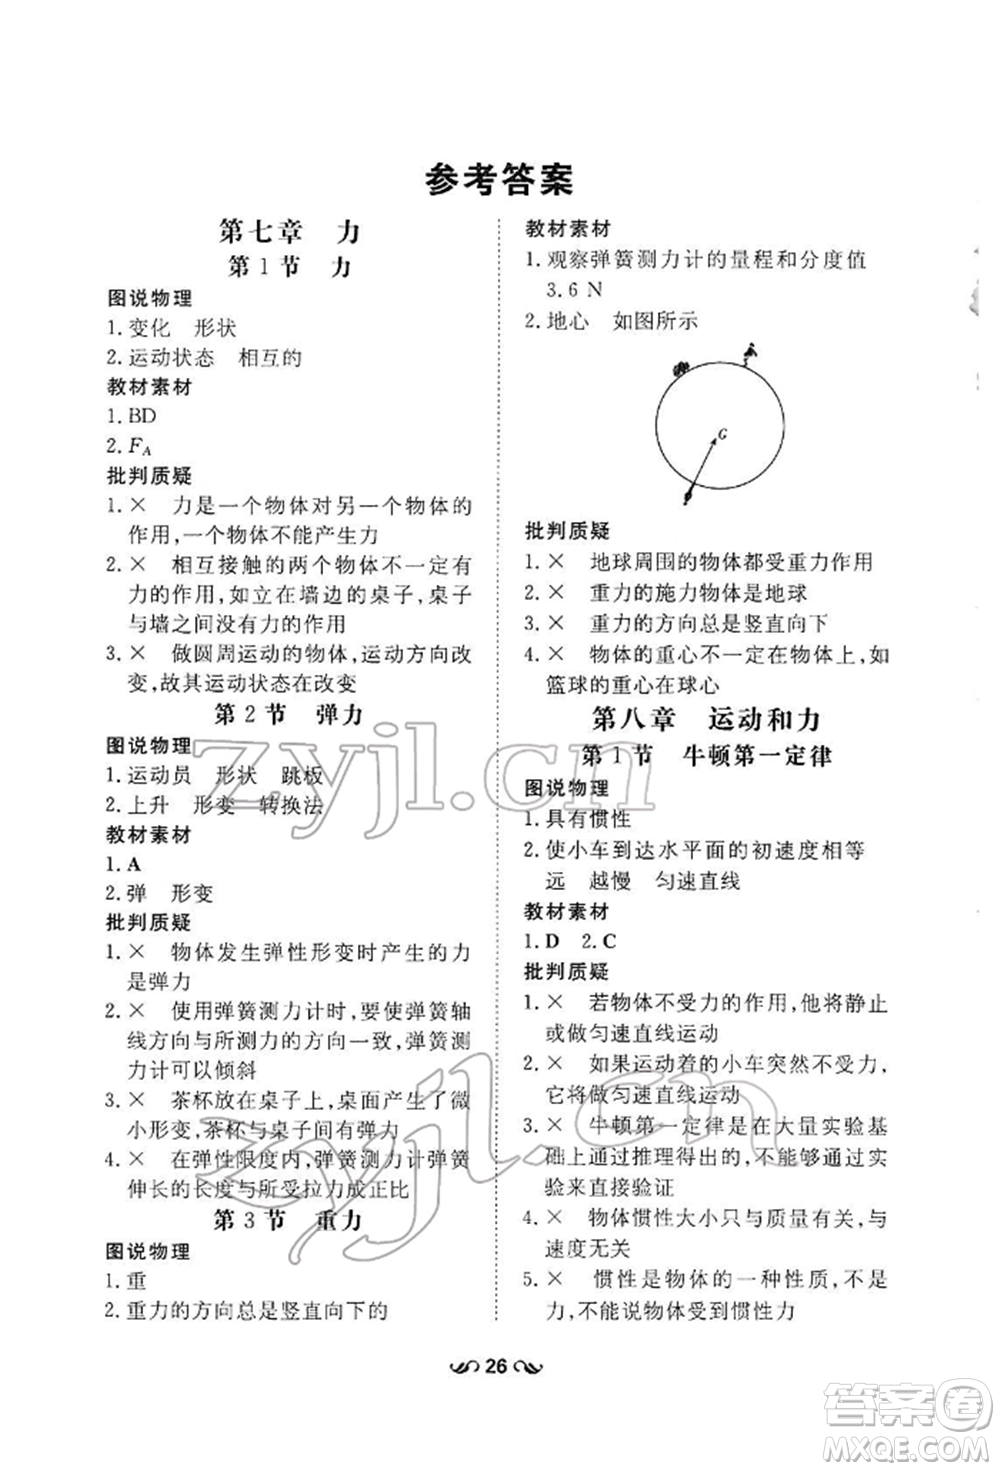 参考答案
第七章 力
第1节 力
图说物理
1.变化 形状
2.运动状态 相互的
教材素材
1.BD
2.F_A
批判质疑
1.× 力是一个物体对另一个物体的
作用,一个物体不能产生力
2.× 相互接触的两个物体不一定有
力的作用,如立在墙边的桌子,桌子
与墙之间没有力的作用
3.× 做圆周运动的物体,运动方向改
变,故其运动状态在改变
第2节 弹力
图说物理
1.运动员 形状 跳板
2.上升 形变 转换法
教材素材
1.A
2.弹 形变
批判质疑
1.× 物体发生弹性形变时产生的力
是弹力
2.× 使用弹簧测力计时,要使弹簧轴
线方向与所测力的方向一致,弹簧测
力计可以倾斜
3.× 茶杯放在桌子上,桌面产生了微
小形变,茶杯与桌子间有弹力
4.× 在弹性限度内,弹簧测力计弹簧
伸长的长度与所受拉力成正比
第3节 重力
图说物理
1.重
2.重力的方向总是竖直向下的
教材素材
1.观察弹簧测力计的量程和分度值
3.6 N
2.地心 如图所示
G
批判质疑
1.× 地球周围的物体都受重力作用
2.× 重力的施力物体是地球
3.× 重力的方向总是竖直向下
4.× 物体的重心不一定在物体上,如
篮球的重心在球心
第八章 运动和力
第1节 牛顿第一定律
图说物理
1.具有惯性
2.使小车到达水平面的初速度相等
远 越慢 匀速直线
教材素材
1.D 2.C
批判质疑
1.× 若物体不受力的作用,他将静止
或做匀速直线运动
2.× 如果运动着的小车突然不受力,
它将做匀速直线运动
3.× 牛顿第一定律是在大量实验基
础上通过推理得出的,不能够通过
实验来直接验证
4.× 物体惯性大小只与质量有关,与
速度无关
5.× 惯性是物体的一种性质,不是
力,不能说物体受到惯性力
26
zyjl.cn
zyjl.cn
答案圈
MXQE.COM